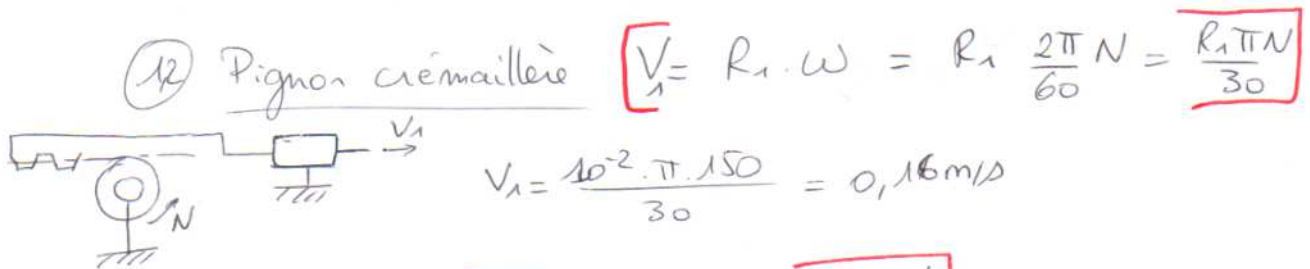 12 Pignon crémaillère V₁ = R₁.ω = R₁ 2π/60 N = R₁πN/30
V₁
V₁ = 10⁻².π.150/30 = 0,16m/s
N